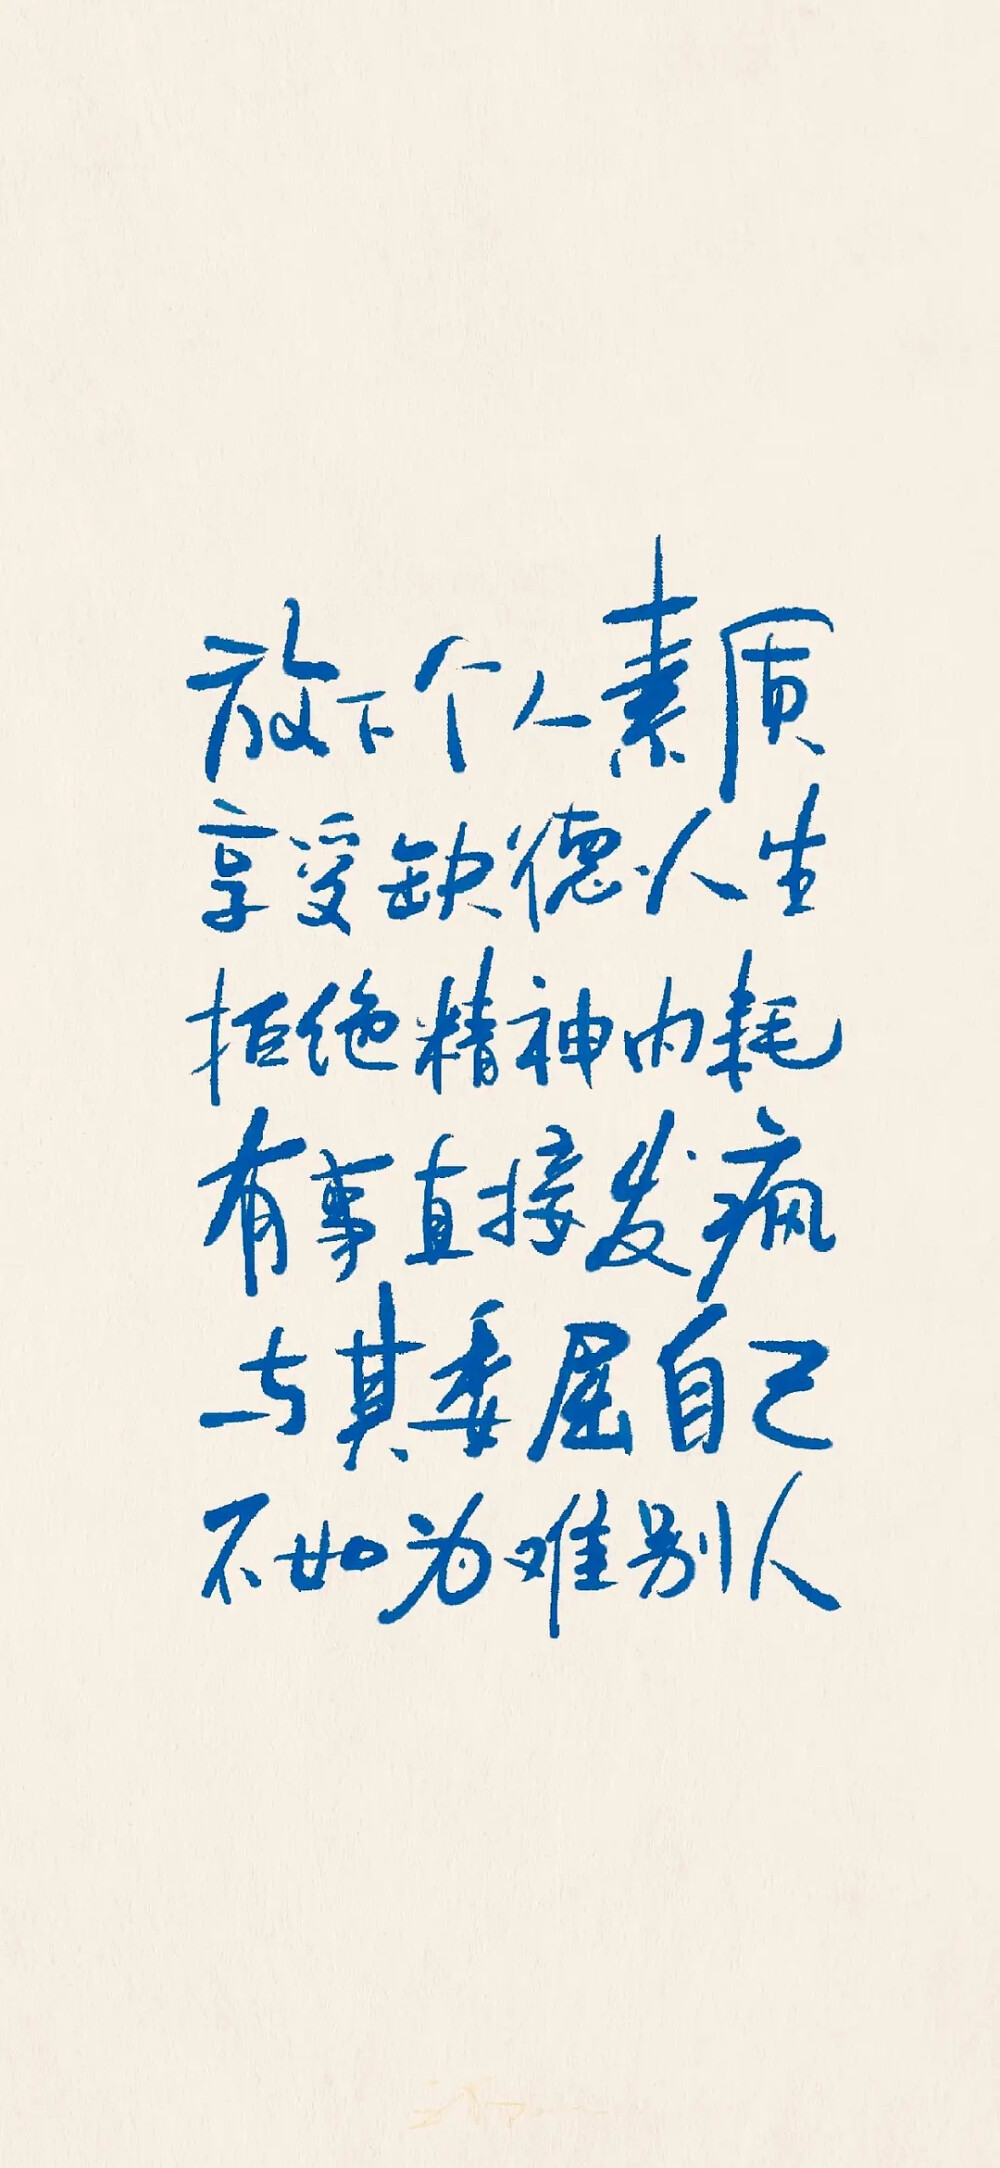 放下个人素质
享受缺德人生
拒绝精神内耗
有事直接发疯
与其委屈自己
不如为难别人